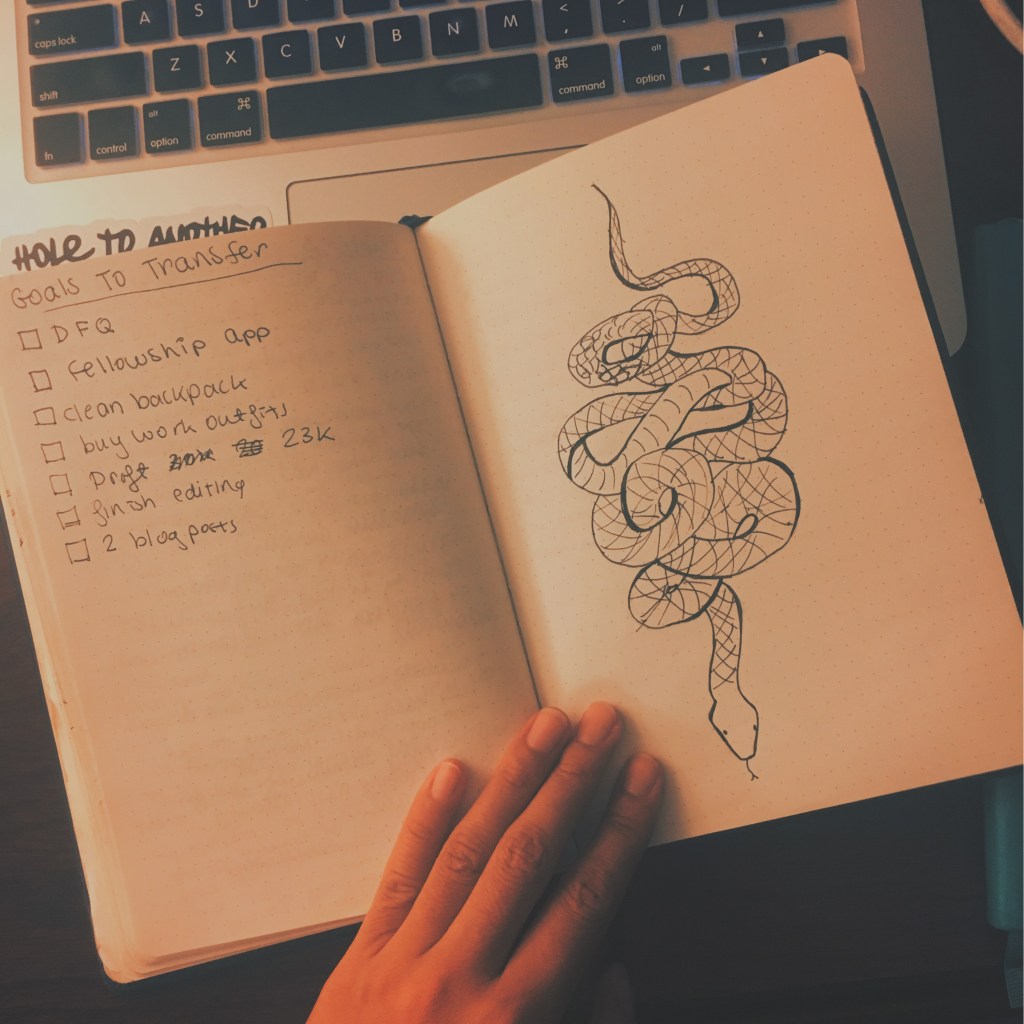 A S D
caps lock
Z X C V B N M < , > . /
shift
fn control alt option ⌘ command ⌘ command alt option
HOLE TO ANOTHER
Goals To Transfer
DFQ
fellowship app
clean backpack
buy work outfits
Draft 23K
finish editing
2 blog posts